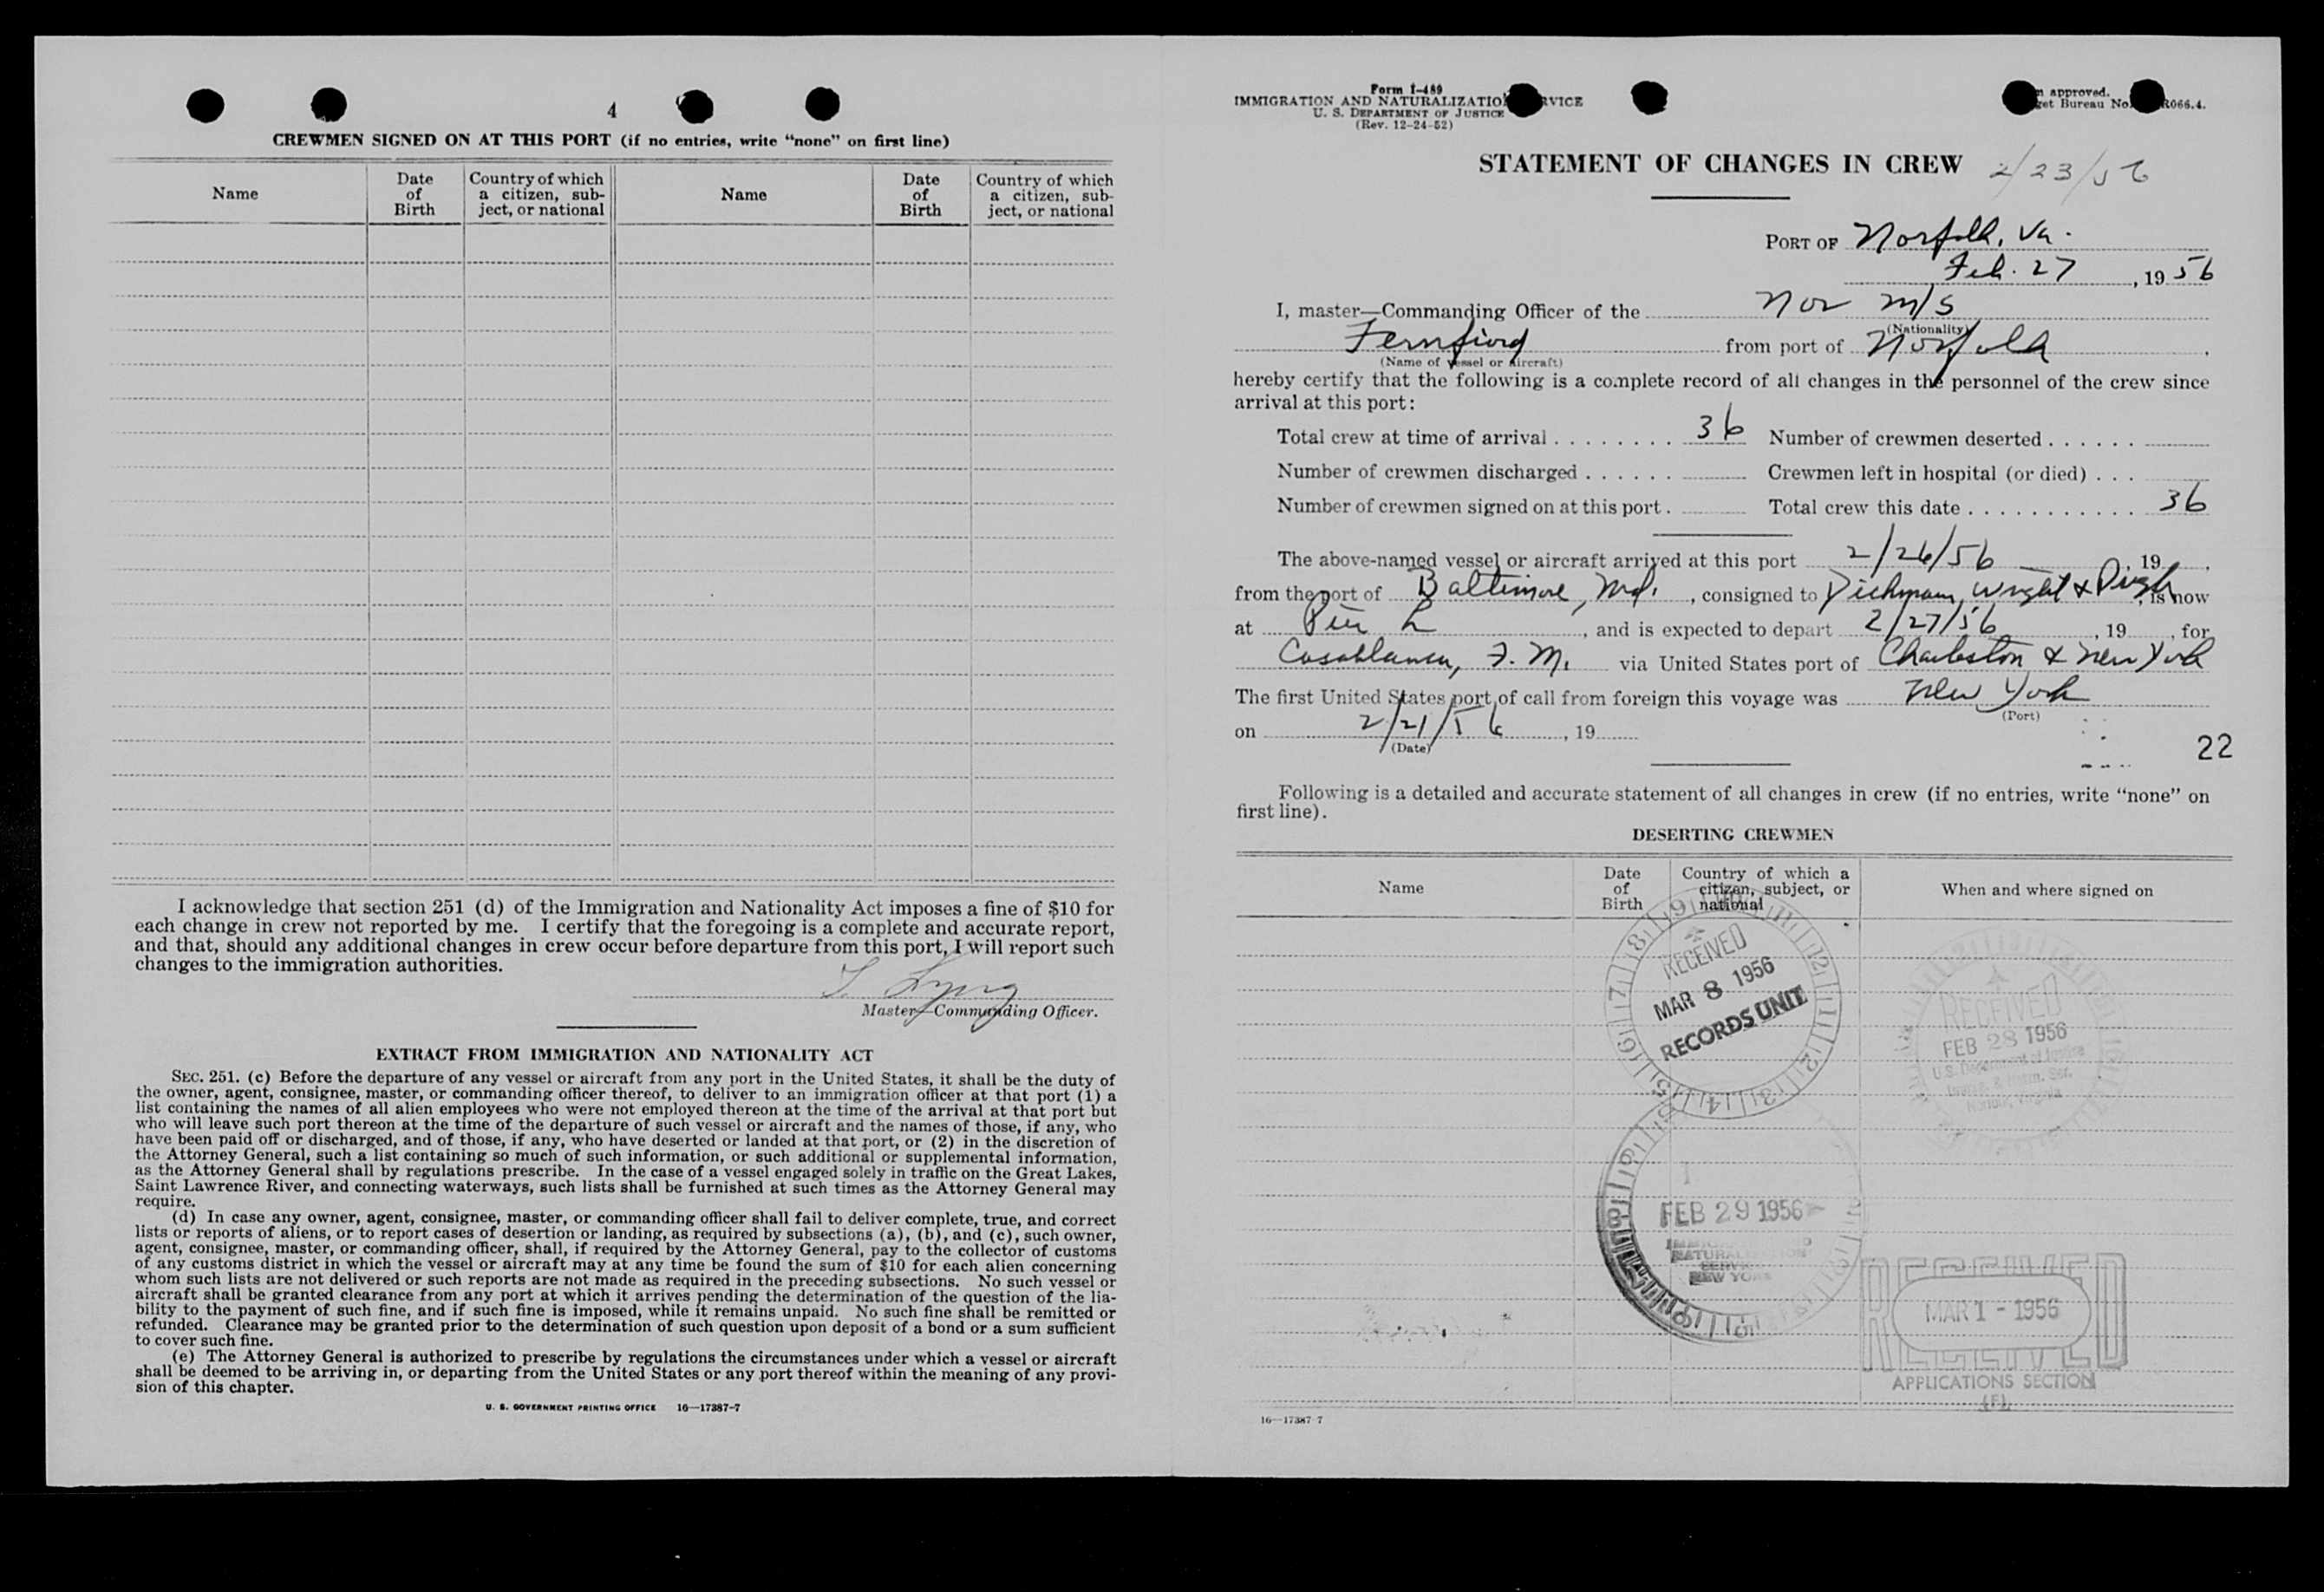 4
CREWMEN SIGNED ON AT THIS PORT (if no entries, write “none” on first line)
Name
Date of Birth
Country of which a citizen, sub-ject, or national
Name
Date of Birth
Country of which a citizen, sub-ject, or national
I acknowledge that section 251 (d) of the Immigration and Nationality Act imposes a fine of $10 for
each change in crew not reported by me. I certify that the foregoing is a complete and accurate report,
and that, should any additional changes in crew occur before departure from this port, I will report such
changes to the immigration authorities.
Master—Commanding Officer.
EXTRACT FROM IMMIGRATION AND NATIONALITY ACT
SEC. 251. (c) Before the departure of any vessel or aircraft from any port in the United States, it shall be the duty of
the owner, agent, consignee, master, or commanding officer thereof, to deliver to an immigration officer at that port (1) a
list containing the names of all alien employees who were not employed thereon at the time of the arrival at that port but
who will leave such port thereon at the time of the departure of such vessel or aircraft and the names of those, if any, who
have been paid off or discharged, and of those, if any, who have deserted or landed at that port, or (2) in the discretion of
the Attorney General, such a list containing so much of such information, or such additional or supplemental information,
as the Attorney General shall by regulations prescribe. In the case of a vessel engaged solely in traffic on the Great Lakes,
Saint Lawrence River, and connecting waterways, such lists shall be furnished at such times as the Attorney General may
require.
(d) In case any owner, agent, consignee, master, or commanding officer shall fail to deliver complete, true, and correct
lists or reports of aliens, or to report cases of desertion or landing, as required by subsections (a), (b), and (c), such owner,
agent, consignee, master, or commanding officer, shall, if required by the Attorney General, pay to the collector of customs
of any customs district in which the vessel or aircraft may at any time be found the sum of $10 for each alien concerning
whom such lists are not delivered or such reports are not made as required in the preceding subsections. No such vessel or
aircraft shall be granted clearance from any port at which it arrives pending the determination of the question of the lia-
bility to the payment of such fine, and if such fine is imposed, while it remains unpaid. No such fine shall be remitted or
refunded. Clearance may be granted prior to the determination of such question upon deposit of a bond or a sum sufficient
to cover such fine.
(e) The Attorney General is authorized to prescribe by regulations the circumstances under which a vessel or aircraft
shall be deemed to be arriving in, or departing from the United States or any port thereof within the meaning of any provi-
sion of this chapter.
U. S. GOVERNMENT PRINTING OFFICE 16—17387-7
Form I-489
IMMIGRATION AND NATURALIZATIO RVICE
U. S. DEPARTMENT OF JUSTICE
(Rev. 12-24-52)
approved.
get Bureau No. R066.4.
STATEMENT OF CHANGES IN CREW 2/23/56
PORT OF Norfolk, Va.
Feb. 27, 19 56
I, master—Commanding Officer of the Nor M/S
(Nationality)
Fernfiord from port of Norfolk
(Name of vessel or aircraft)
hereby certify that the following is a complete record of all changes in the personnel of the crew since
arrival at this port:
Total crew at time of arrival . . . . . . . . 36 Number of crewmen deserted . . . . . .
Number of crewmen discharged . . . . . . Crewmen left in hospital (or died) . . .
Number of crewmen signed on at this port . Total crew this date . . . . . . . . . . . 36
The above-named vessel or aircraft arrived at this port 2/26/56, 19 .
from the port of Baltimore, Md., consigned to Dichmann, Wright & Pugh, is now
at Pier L, and is expected to depart 2/27/56, 19 , for
Casablanca, F. M. via United States port of Charleston & New York
The first United States port of call from foreign this voyage was New York
(Port)
on 2/21/56, 19
(Date)
22
Following is a detailed and accurate statement of all changes in crew (if no entries, write “none” on
first line).
DESERTING CREWMEN
Name
Date of Birth
Country of which a citizen, subject, or national
When and where signed on
RECEIVED
MAR 8 1956
RECORDS UNIT
RECEIVED
FEB 28 1956
U.S. Department of Justice
FEB 29 1956
NEW YORK
RECEIVED
MAR 1 - 1956
APPLICATIONS SECTION
(F)
16—17387-7